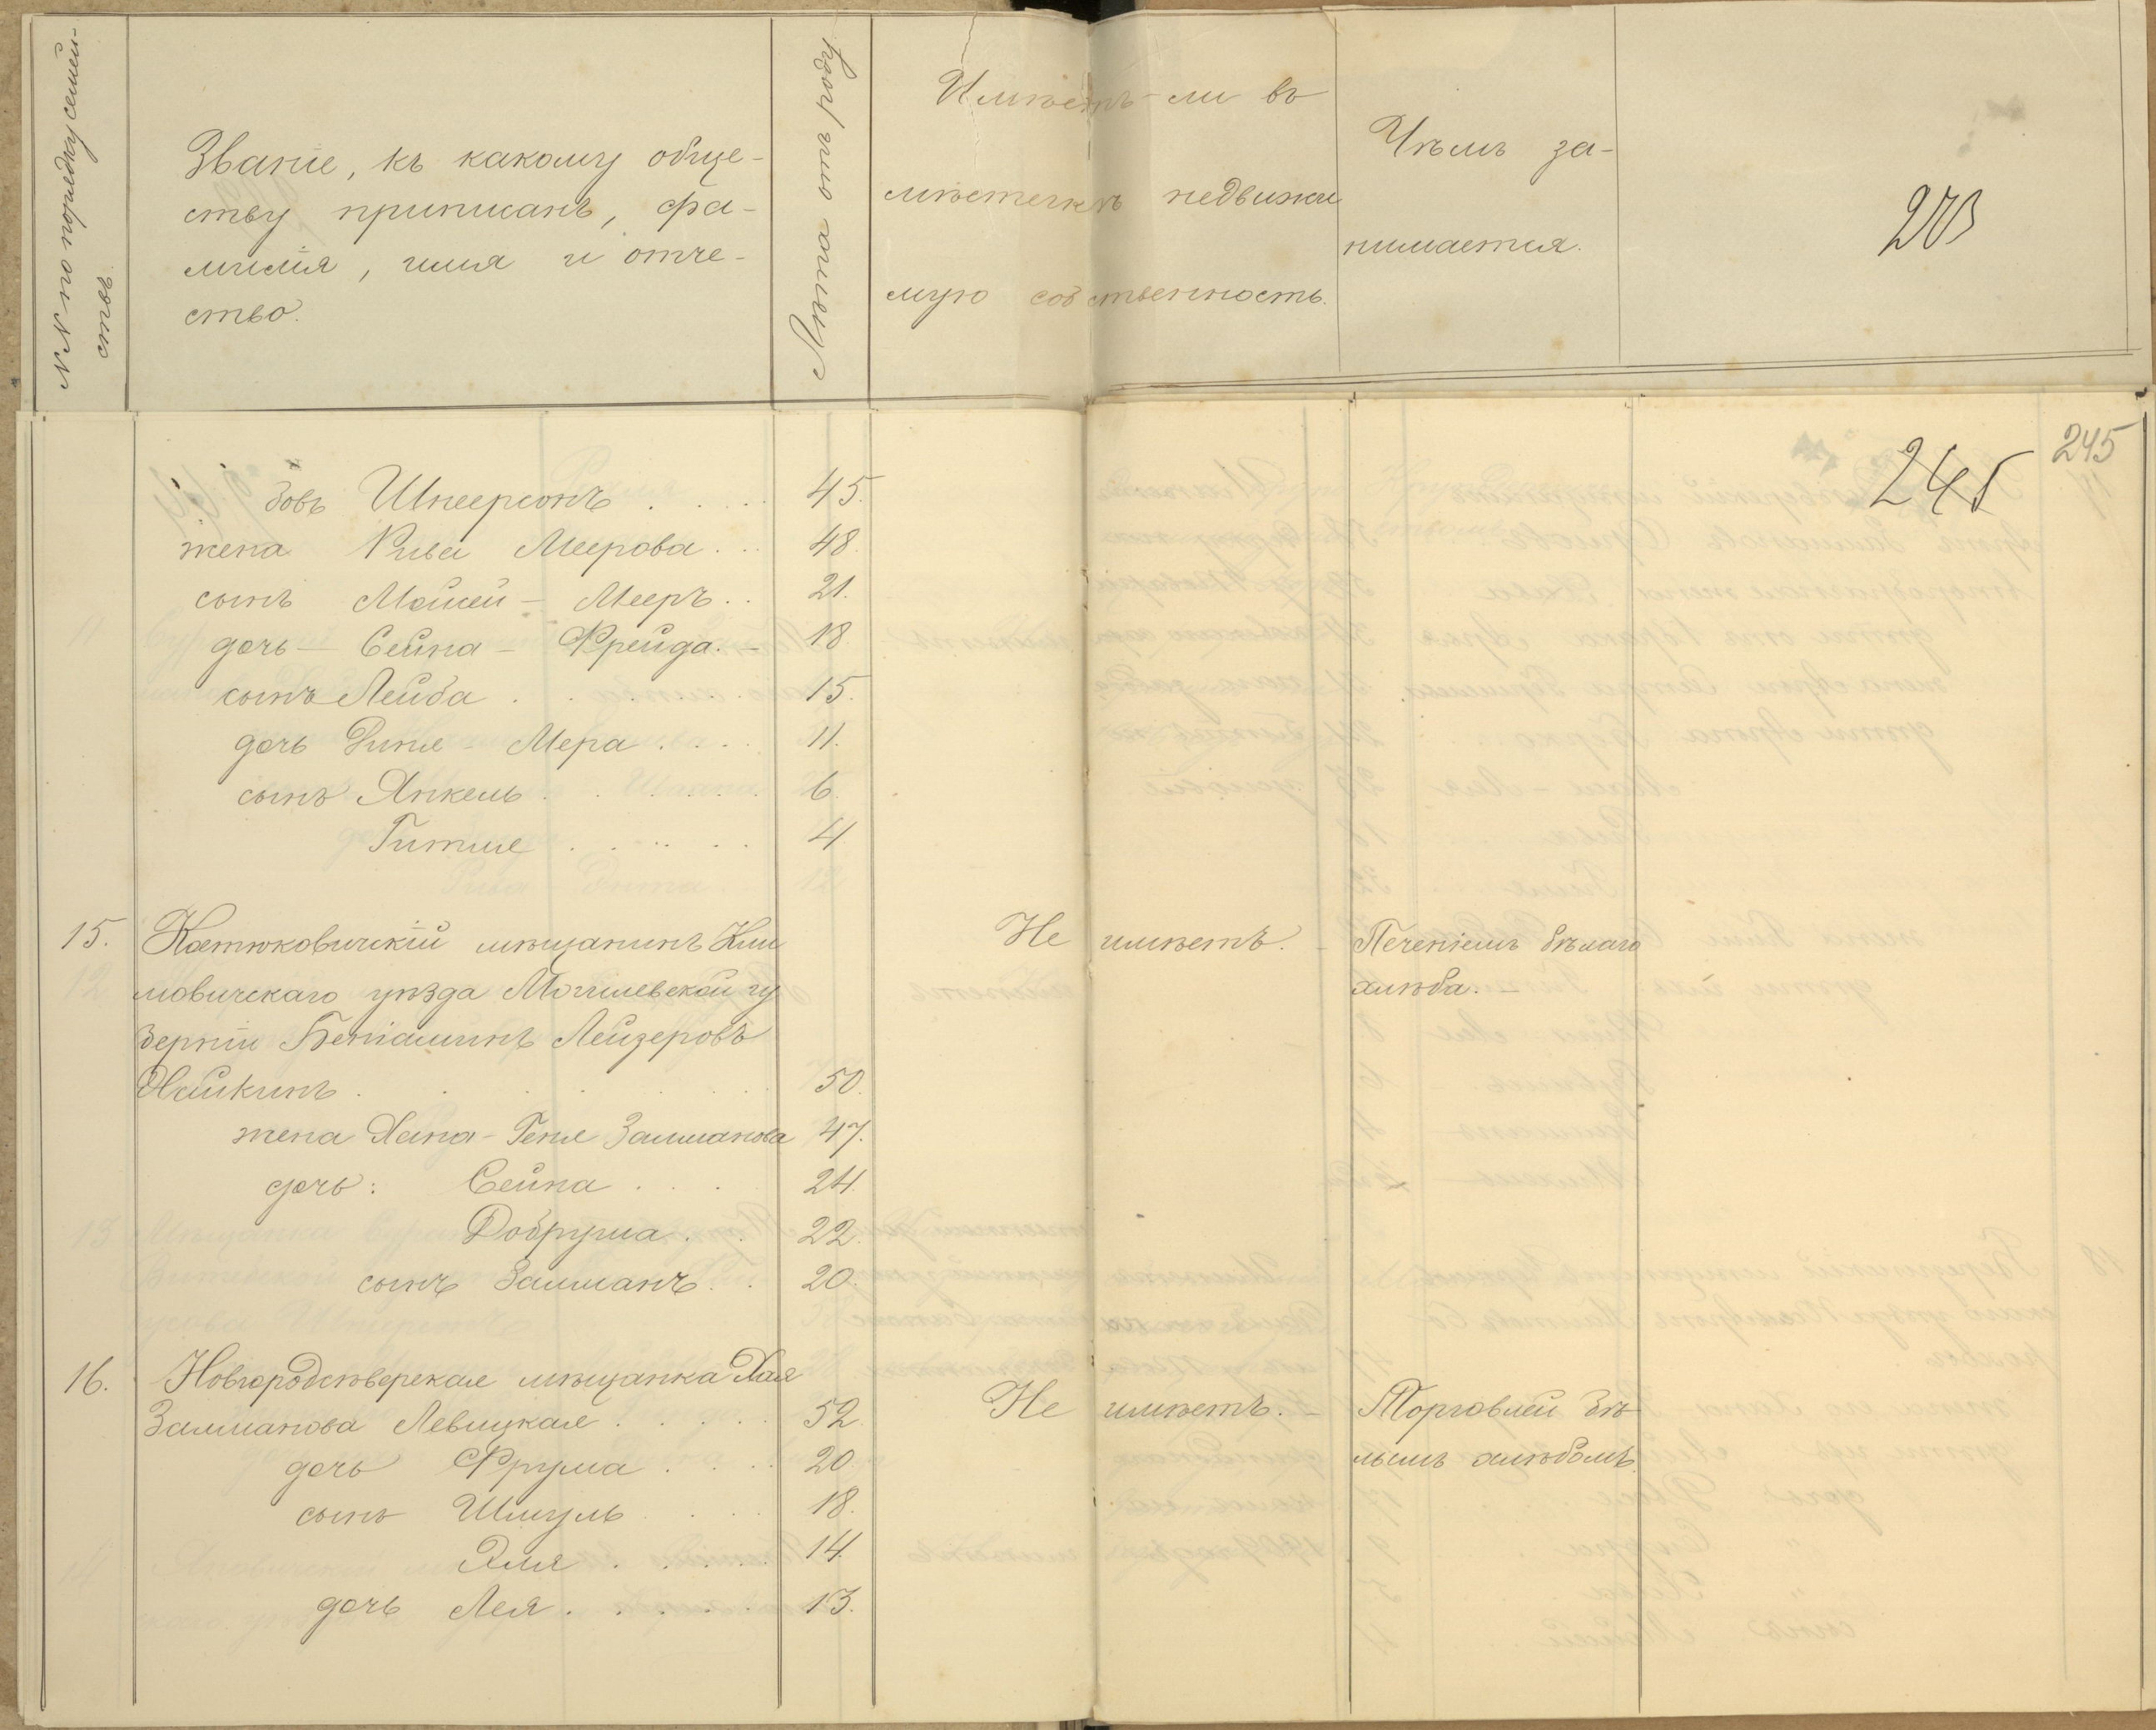 №№ по порядку семей-
ствъ
Званіе, къ какому обще-
ству приписанъ, фа-
милія, имя и отче-
ство.
Лѣта отъ роду
Имѣетъ-ли въ
мѣстечкѣ недвижи
мую собственность.
Чѣмъ за-
нимается.
203
245
245
бовъ Шнеерсонъ 45.
жена Рива Меерова 48.
сынъ Мойсей - Мееръ 21.
дочь - Сейна - Фрейда. 18
сынъ Лейба 15.
дочь Диня - Мера 11.
сынъ Янкель 6.
Гитля 4
15. Костюковичскій мѣщанинъ Кли Не имѣетъ. Печеніемъ бѣлаго
мовичскаго уѣзда Могилевской гу хлѣба.
берніи Беніаминъ Лейзеровъ
Хайкинъ 50.
жена Хана - Геня Залманова 47.
дочь: Сейна 24.
Добрума 22.
сынъ Залманъ 20.
16. Новгородсѣверская мѣщанка Хая
Залманова Левицкая 52. Не имѣетъ. Торговлей бѣ
дочь Фрума 20 лымъ хлѣбомъ.
сынъ Шмуль 18.
Эля 14.
дочь Лея 13.